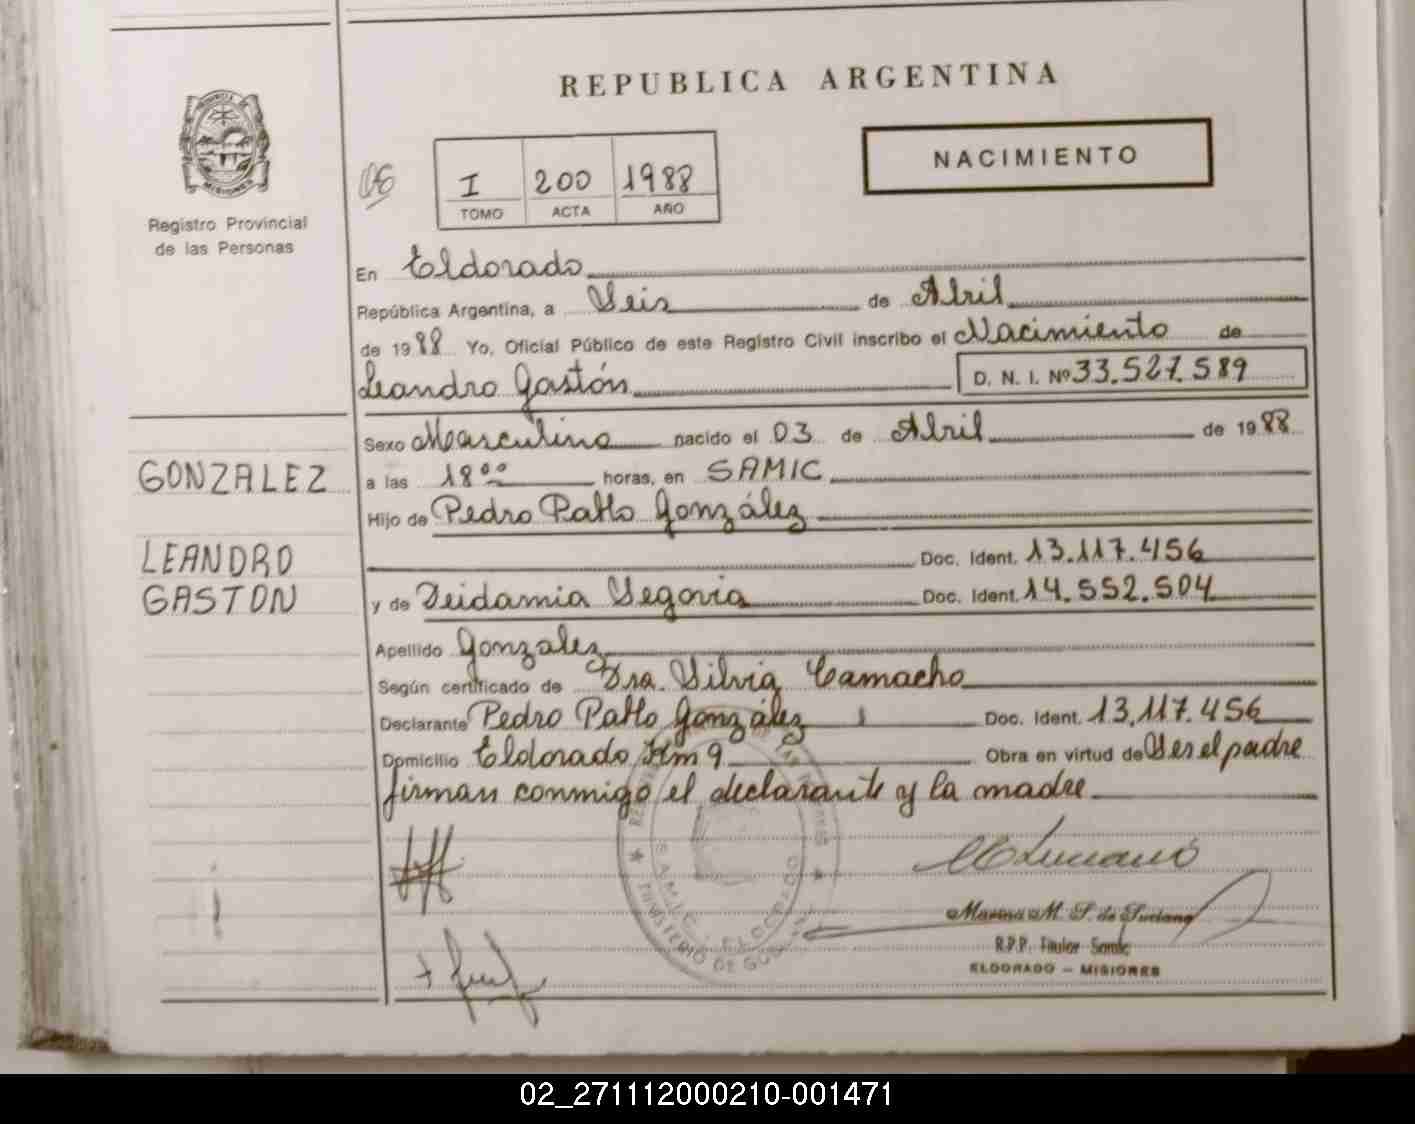 REPUBLICA ARGENTINA
NACIMIENTO
06
I 200 1988
TOMO ACTA AÑO
Registro Provincial
de las Personas
En Eldorado
República Argentina, a Seis de Abril
de 1988 Yo, Oficial Público de este Registro Civil inscribo el Nacimiento de
Leandro Gastón D. N. I. Nº 33.527.589
Sexo Masculino nacido el 03 de Abril de 1988
GONZALEZ
a las 18⁰⁰ horas, en SAMIC
Hijo de Pedro Pablo González
LEANDRO
GASTON
Doc. Ident. 13.117.456
y de Deidamia Segovia Doc. Ident. 14.552.504
Apellido Gonzalez
Según certificado de Dra. Silvia Camacho
Declarante Pedro Pablo González Doc. Ident. 13.117.456
Domicilio Eldorado Km 9 Obra en virtud de Ser el padre
firman conmigo el declarante y la madre
S.A.M.I.C. ELDORADO
MINISTERIO DE
R.P.P. Titular Samic
ELDORADO - MISIONES
02_271112000210-001471